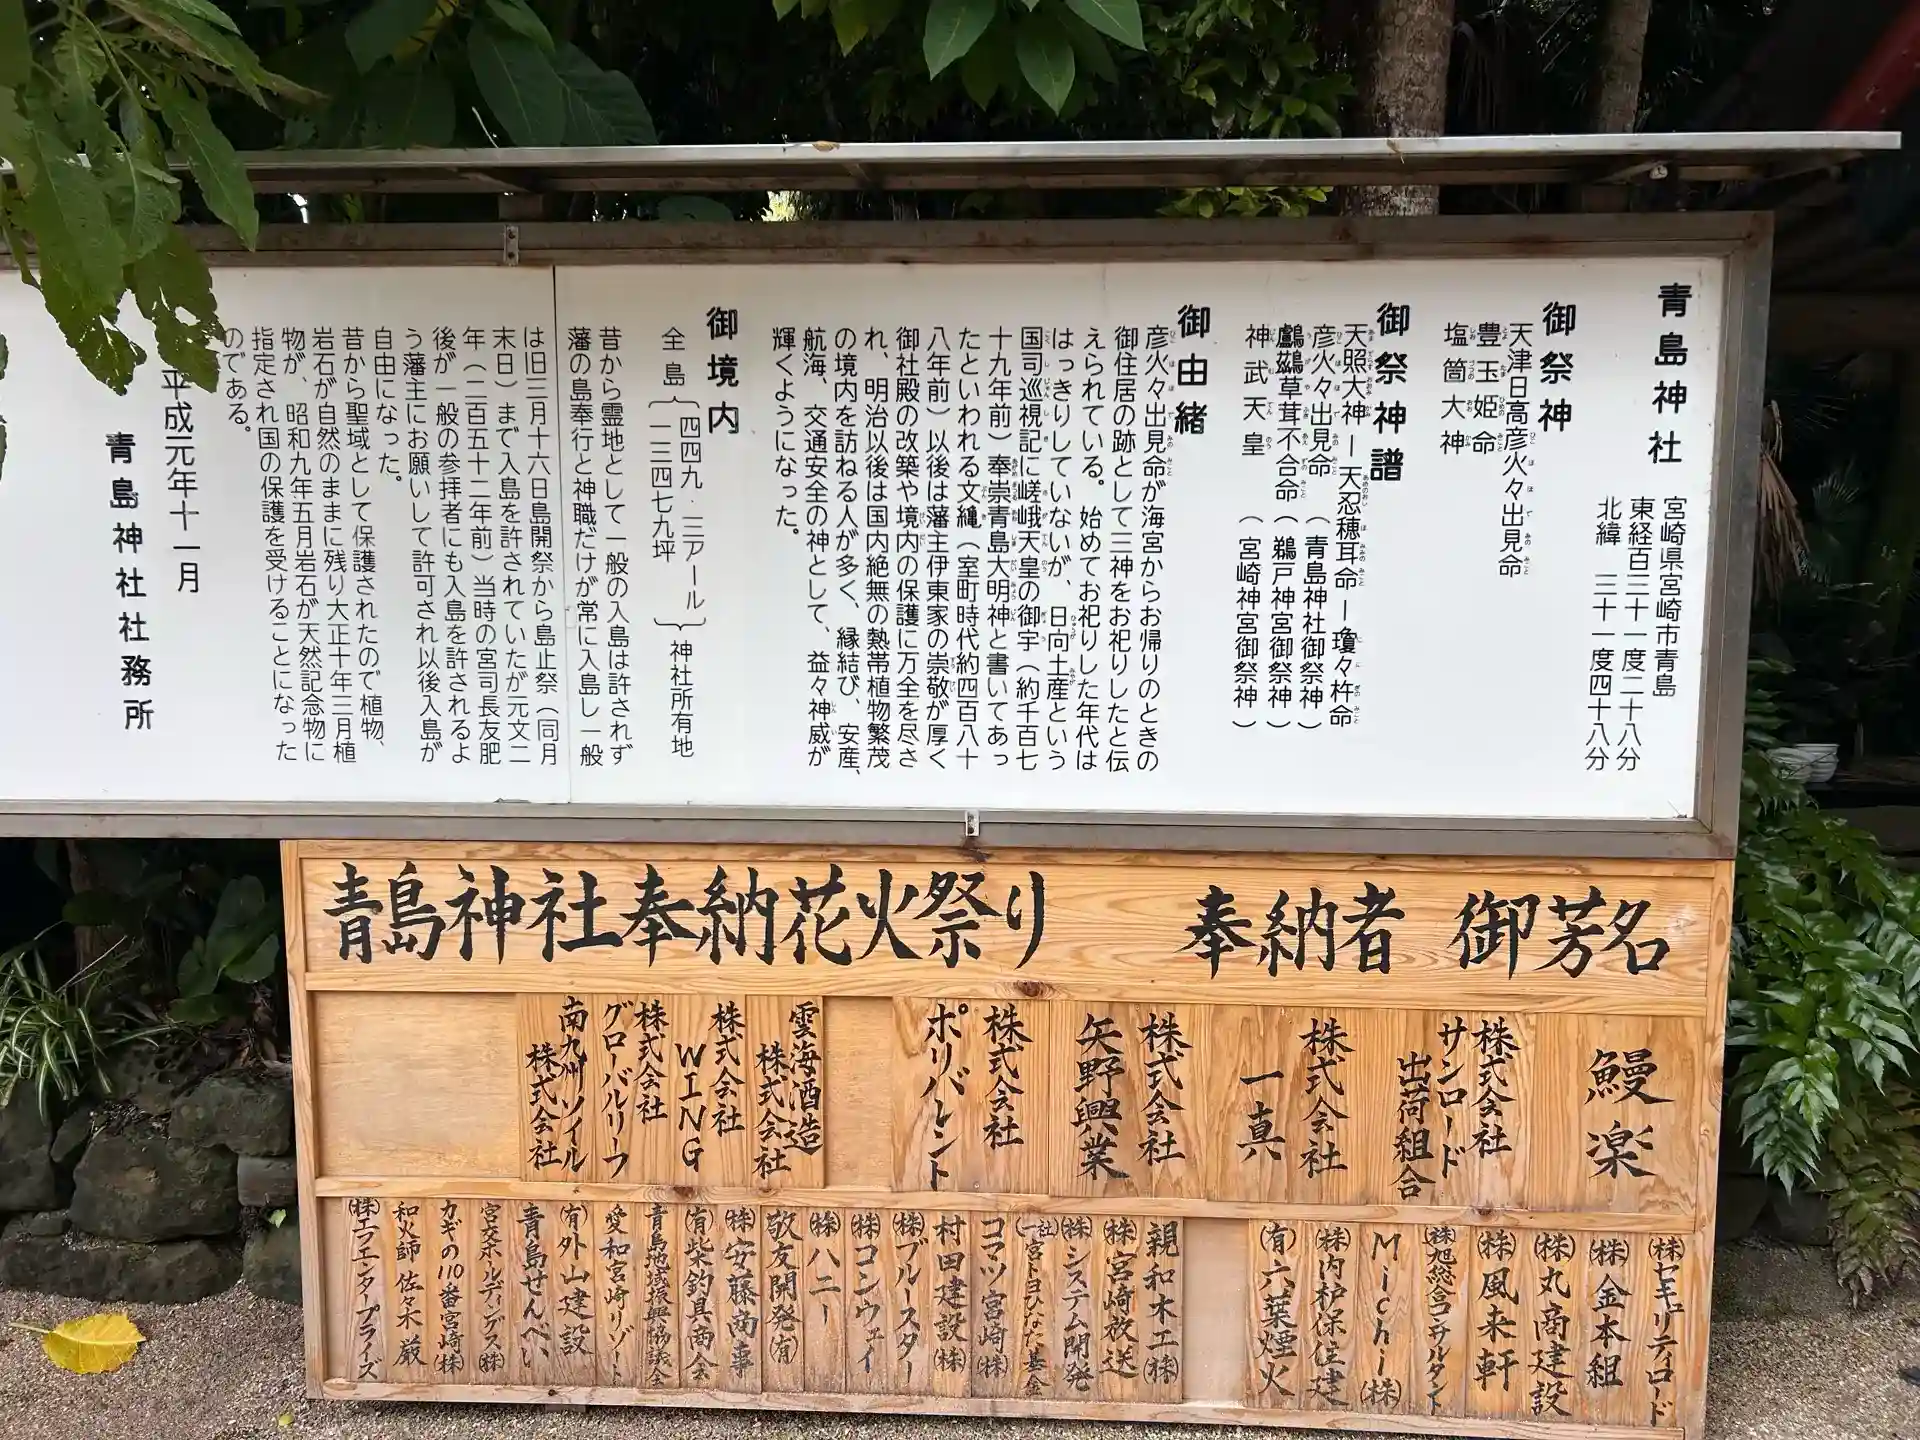 青島神社
宮崎県宮崎市青島
東経百三十一度二十八分
北緯 三十一度四十八分
御祭神
天津日高彦火々出見命
豊玉姫命
塩筒大神
御祭神譜
天照大神―天忍穂耳命―瓊々杵命
彦火々出見命（青島神社御祭神）
鸕鷀草葺不合命（鵜戸神宮御祭神）
神武天皇（宮崎神宮御祭神）
御由緒
彦火々出見命が海宮からお帰りのときの
御住居の跡として三神をお祀りしたと伝
えられている。始めてお祀りした年代は
はっきりしていないが、日向土産という
国司巡視記に嵯峨天皇の御宇（約千百七
十九年前）奉崇青島大明神と書いてあっ
たといわれる文亀（室町時代約四百八十
八年前）以後は藩主伊東家の崇敬が厚く
御社殿の改築や境内の保護に万全を尽さ
れ、明治以後は国内絶無の熱帯植物繁茂
の境内を訪ねる人が多く、縁結び、安産、
航海、交通安全の神として、益々神威が
輝くようになった。
御境内
全島｛四四九.三アール 一三四七九坪｝神社所有地
昔から霊地として一般の入島は許されず
藩の島奉行と神職だけが常に入島し一般
は旧三月十六日島開祭から島止祭（同月
末日）まで入島を許されていたが元文二
年（二百五十二年前）当時の宮司長友肥
後が一般の参拝者にも入島を許されるよ
う藩主にお願いして許可され以後入島が
自由になった。
昔から聖域として保護されたので植物、
岩石が自然のままに残り大正十年三月植
物が、昭和九年五月岩石が天然記念物に
指定され国の保護を受けることになった
のである。
平成元年十一月
青島神社社務所
青島神社奉納花火祭り 奉納者 御芳名
鰻楽
株式会社
サンロード
出荷組合
株式会社
一真
株式会社
矢野興業
株式会社
ポリバレント
雲海酒造
株式会社
株式会社
WING
株式会社
グローバルリーフ
南九州ソイル
株式会社
㈱セキュリティロード
㈱金本組
㈱丸商建設
㈱風来軒
㈱旭総合コンサルタント
Michi㈱
㈱内村保住建
㈲六葉煙火
親和木工㈱
㈱宮崎放送
㈱システム開発
(一社)宮トヨひなた基金
コマツ宮崎㈱
村田建設㈱
㈱ブルースター
㈱コンウェイ
㈱ハニー
敬友開発㈲
㈱安藤商事
㈲柴釣具商会
青島地域振興協議会
愛和宮崎リゾート
㈲外山建設
青島せんべい
宮交ホールディングス㈱
カギの110番宮崎㈱
和火師 佐々木厳
㈱エフエンタープライズ